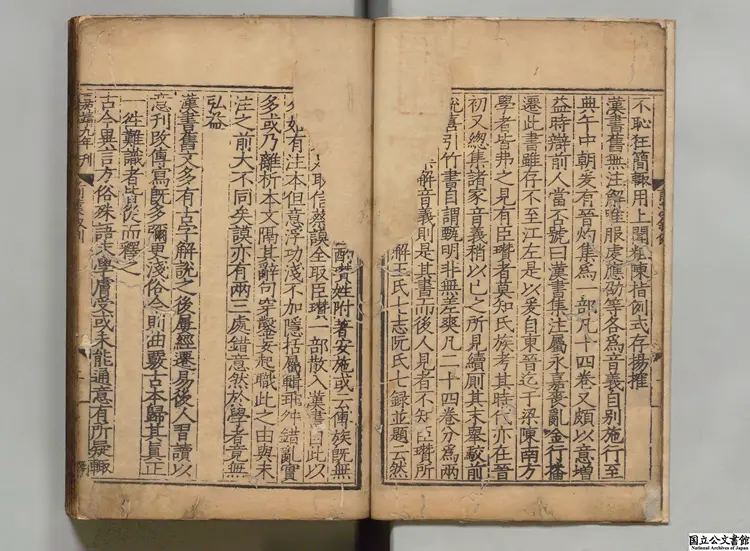 不恥狂簡輒用上聞粗陳指例式存揚搉
漢書舊無注解唯服虔應劭等各爲音義自別施行至
典午中朝爰有晉灼集爲一部凡十四卷又頗以意增
益時辯前人當否號曰漢書集注屬永嘉喪亂金行播
遷此書雖存不至江左是以爰自東晉迄于梁陳南方
學者皆弗之見有臣瓚者莫知氏族考其時代亦在晉
初又總集諸家音義稍以己之所見續厠其末舉駮前
說喜引竹書自謂甄明非無差爽凡二十四卷分爲兩
集解音義則是其書而後人見者不知臣瓚所
解王氏七志阮氏七錄並題云然
酌瓚姓附著安施或云傅族既無
取信蔡謨全取臣瓚一部散入漢書自此以
來始有注本但意浮功淺不加隱括屬輯乖舛錯亂實
多或乃離析本文隔其辭句穿鑿妄起職此之由與未
注之前大不同矣謨亦有兩三處錯意然於學者竟無
弘益
漢書舊文多有古字解說之後屢經遷易後人習讀以
意刊改傳寫既多彌更淺俗今則曲覈古本歸其眞正
一往難識者皆從而釋之
古今異言方俗殊語末學膚受或未能通意有所疑輒
嘉靖九年刊
国立公文書館
National Archives of Japan